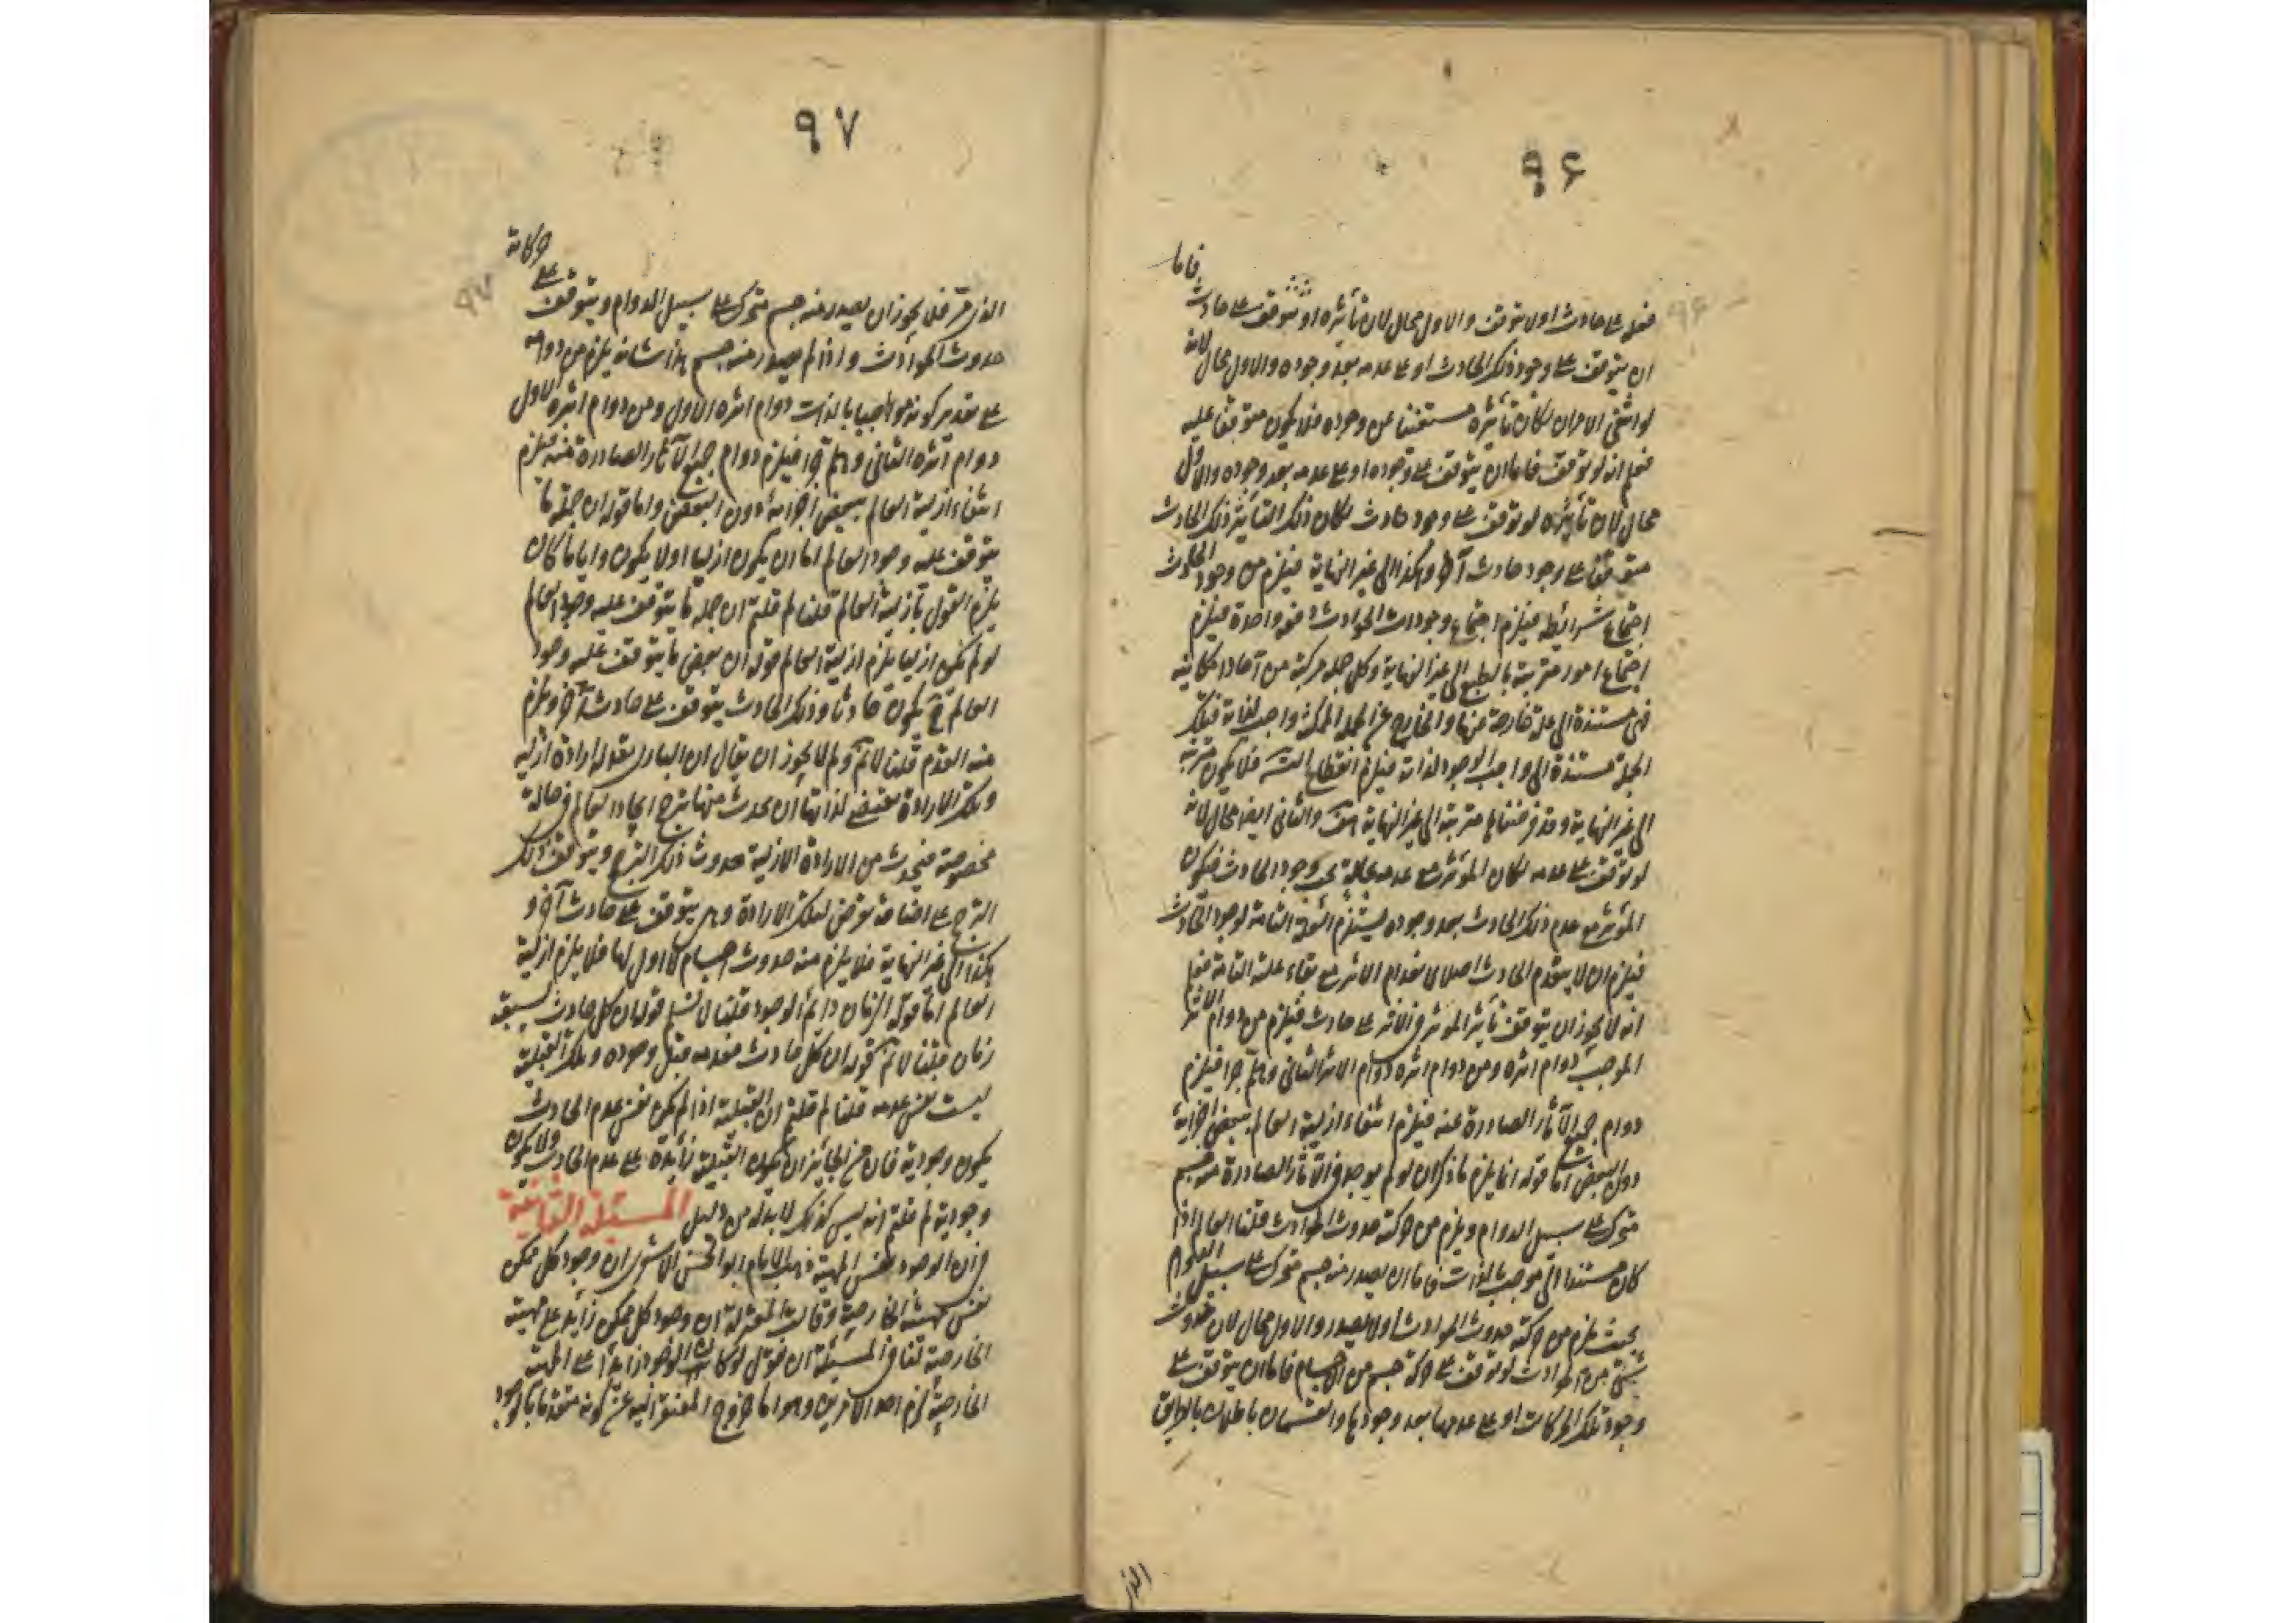 ٩۶
فاما
فعله على حادث او لا يتوقف والاول محال لان تأثيره لو توقف على حادث
ان يتوقف على وجود ذلك الحادث او على عدمه بعد وجوده والاول محال لانه
لو انتفى الامران لكان تأثيره مستغنيا عن وجوده فلا يكون متوقفا عليه
فعلم انه لو توقف فاما ان يتوقف على وجوده او على عدمه بعد وجوده والاول
محال لان تأثيره لو توقف على وجود حادث لكان ذلك التأثير ذلك الحادث
متوقفا على وجود حادث آخر وهكذا الى غير النهاية فيلزم من وجود الحادث
اجتماع شرائطه فيلزم اجتماع وجودات الحوادث دفعة واحدة فيلزم
اجتماع امور مترتبة بالطبع الى غير النهاية وكل جملة مركبة من آحاد امكانية
فهى مستندة الى علة خارجة عنها والخارج عن الجملة الممكنة واجب لذاته فتلك
الجملة مستندة الى واجب الوجود لذاته فيلزم انقطاع التسـ فلا يكون مترتبة
الى غير النهاية وقد فرضناها مترتبة الى غير النهاية هف والثانى ايضا محال لانه
لو توقف على عدمه لكان المؤثر مع عدمه علة وجود الحادث فيكون
المؤثر مع عدم ذلك الحادث بعد وجوده يستلزم العلة التامة لوجود الحادث
فيلزم ان لا ينعدم الحادث اصلا لانعدام الاثر مع بقاء علته التامة فعلم
انه لا يجوز ان يتوقف تأثير المؤثر فى الاثر على حادث فيلزم من دوام المؤثر
الموجب دوام اثره ومن دوام اثره دوام الاثر الثانى وهلم جرا فيلزم
دوام جميع الآثار الصادرة عنه فيلزم انتفاء ازلية العالم ببعض اجزائه
دون البعض اما قوله انما يلزم ما ذكر ان لو لم يوجد فى الآثار الصادرة عنه جسم
متحرك على سبيل الدوام ويلزم من حركته حدوث الحوادث قلنا العالم اذا
كان مستندا الى موجب بالذات فاما ان يصدر منه جسم متحرك على سبيل الدوام
بحيث يلزم من حركته حدوث الحوادث او لا يصدر والاول محال لان حدوث
شئ من الحوادث لو توقف على حركة جسم من الاجسام فاما ان يتوقف على
وجود تلك الحركات او على عدمها بعد وجودها والقسمان باطلان بالطريق
الذى
٩٧
حركاته
الذى مر فلا يجوز ان يصدر منه جسم متحرك على سبيل الدوام ويتوقف على
حدوث الحوادث واذا لم يصدر منه جسم هذا شانه يلزم من دوامه
على تقدير كونه موجبا بالذات دوام اثره الاول ومن دوام اثره الاول
دوام اثره الثانى وهلم جرا فيلزم دوام جميع الآثار الصادرة عنه فيلزم
انتفاء ازلية العالم ببعض اجزائه دون البعض واما قوله ان جملة ما
يتوقف عليه وجود العالم اما ان يكون ازليا او لا يكون وايا ما كان
يلزم القول بازلية العالم قلنا لم قلتم ان جملة ما يتوقف عليه وجود العالم
لو لم يكن ازليا يلزم ازلية العالم قوله ان بعض ما يتوقف عليه وجود
العالم ح يكون حادثا وذلك الحادث يتوقف على حادث آخر ويلزم
منه القدم قلنا لا نم ولم لا يجوز ان يقال ان البارى تعالى له ارادة ازلية
وتلك الارادة تقتضى لذاتها ان يحدث منها ترجح ايجاد العالم فى حالة
مخصوصة فيحدث من الارادة الازلية حدوث ذلك الترجح ويتوقف ذلك
الترجح على اضافة تعرض لتلك الارادة وهى يتوقف على حادث آخر و
هكذا الى غير النهاية فلا يلزم منه حدوث اجسام لا اول لها فلا يلزم ازلية
العالم اما قوله الزمان دائم الوجود قلنا لا نسلم قوله ان كل حادث يسبقه
زمان قلنا لا نم قوله ان كل حادث فعدمه قبل وجوده وتلك القبلية
ليست نفس عدمه قلنا لم قلتم ان القبلية اذا لم يكن نفس عدم الحادث
يكون وجودية فان من الجائز ان يكون القبلية زائدة على عدم الحادث ولا يكون
وجودية لم قلتم انه ليس كذلك لا بد له من دليل المسئلة الثانية
فى ان الوجود نفس المهية ذهب الامام ابو الحسن الاشعرى ان وجود كل ممكن
نفس مهيته الخارجية وقالت المعتزلة ان وجود كل ممكن زايد على مهيته
الخارجية لنا فى المسئلة ان نقول لو كان الوجود زايدا على المهية
الخارجية لزم احد الامرين وهو اما خروج المفتقر اليه عن كونه متقدما بالوجود